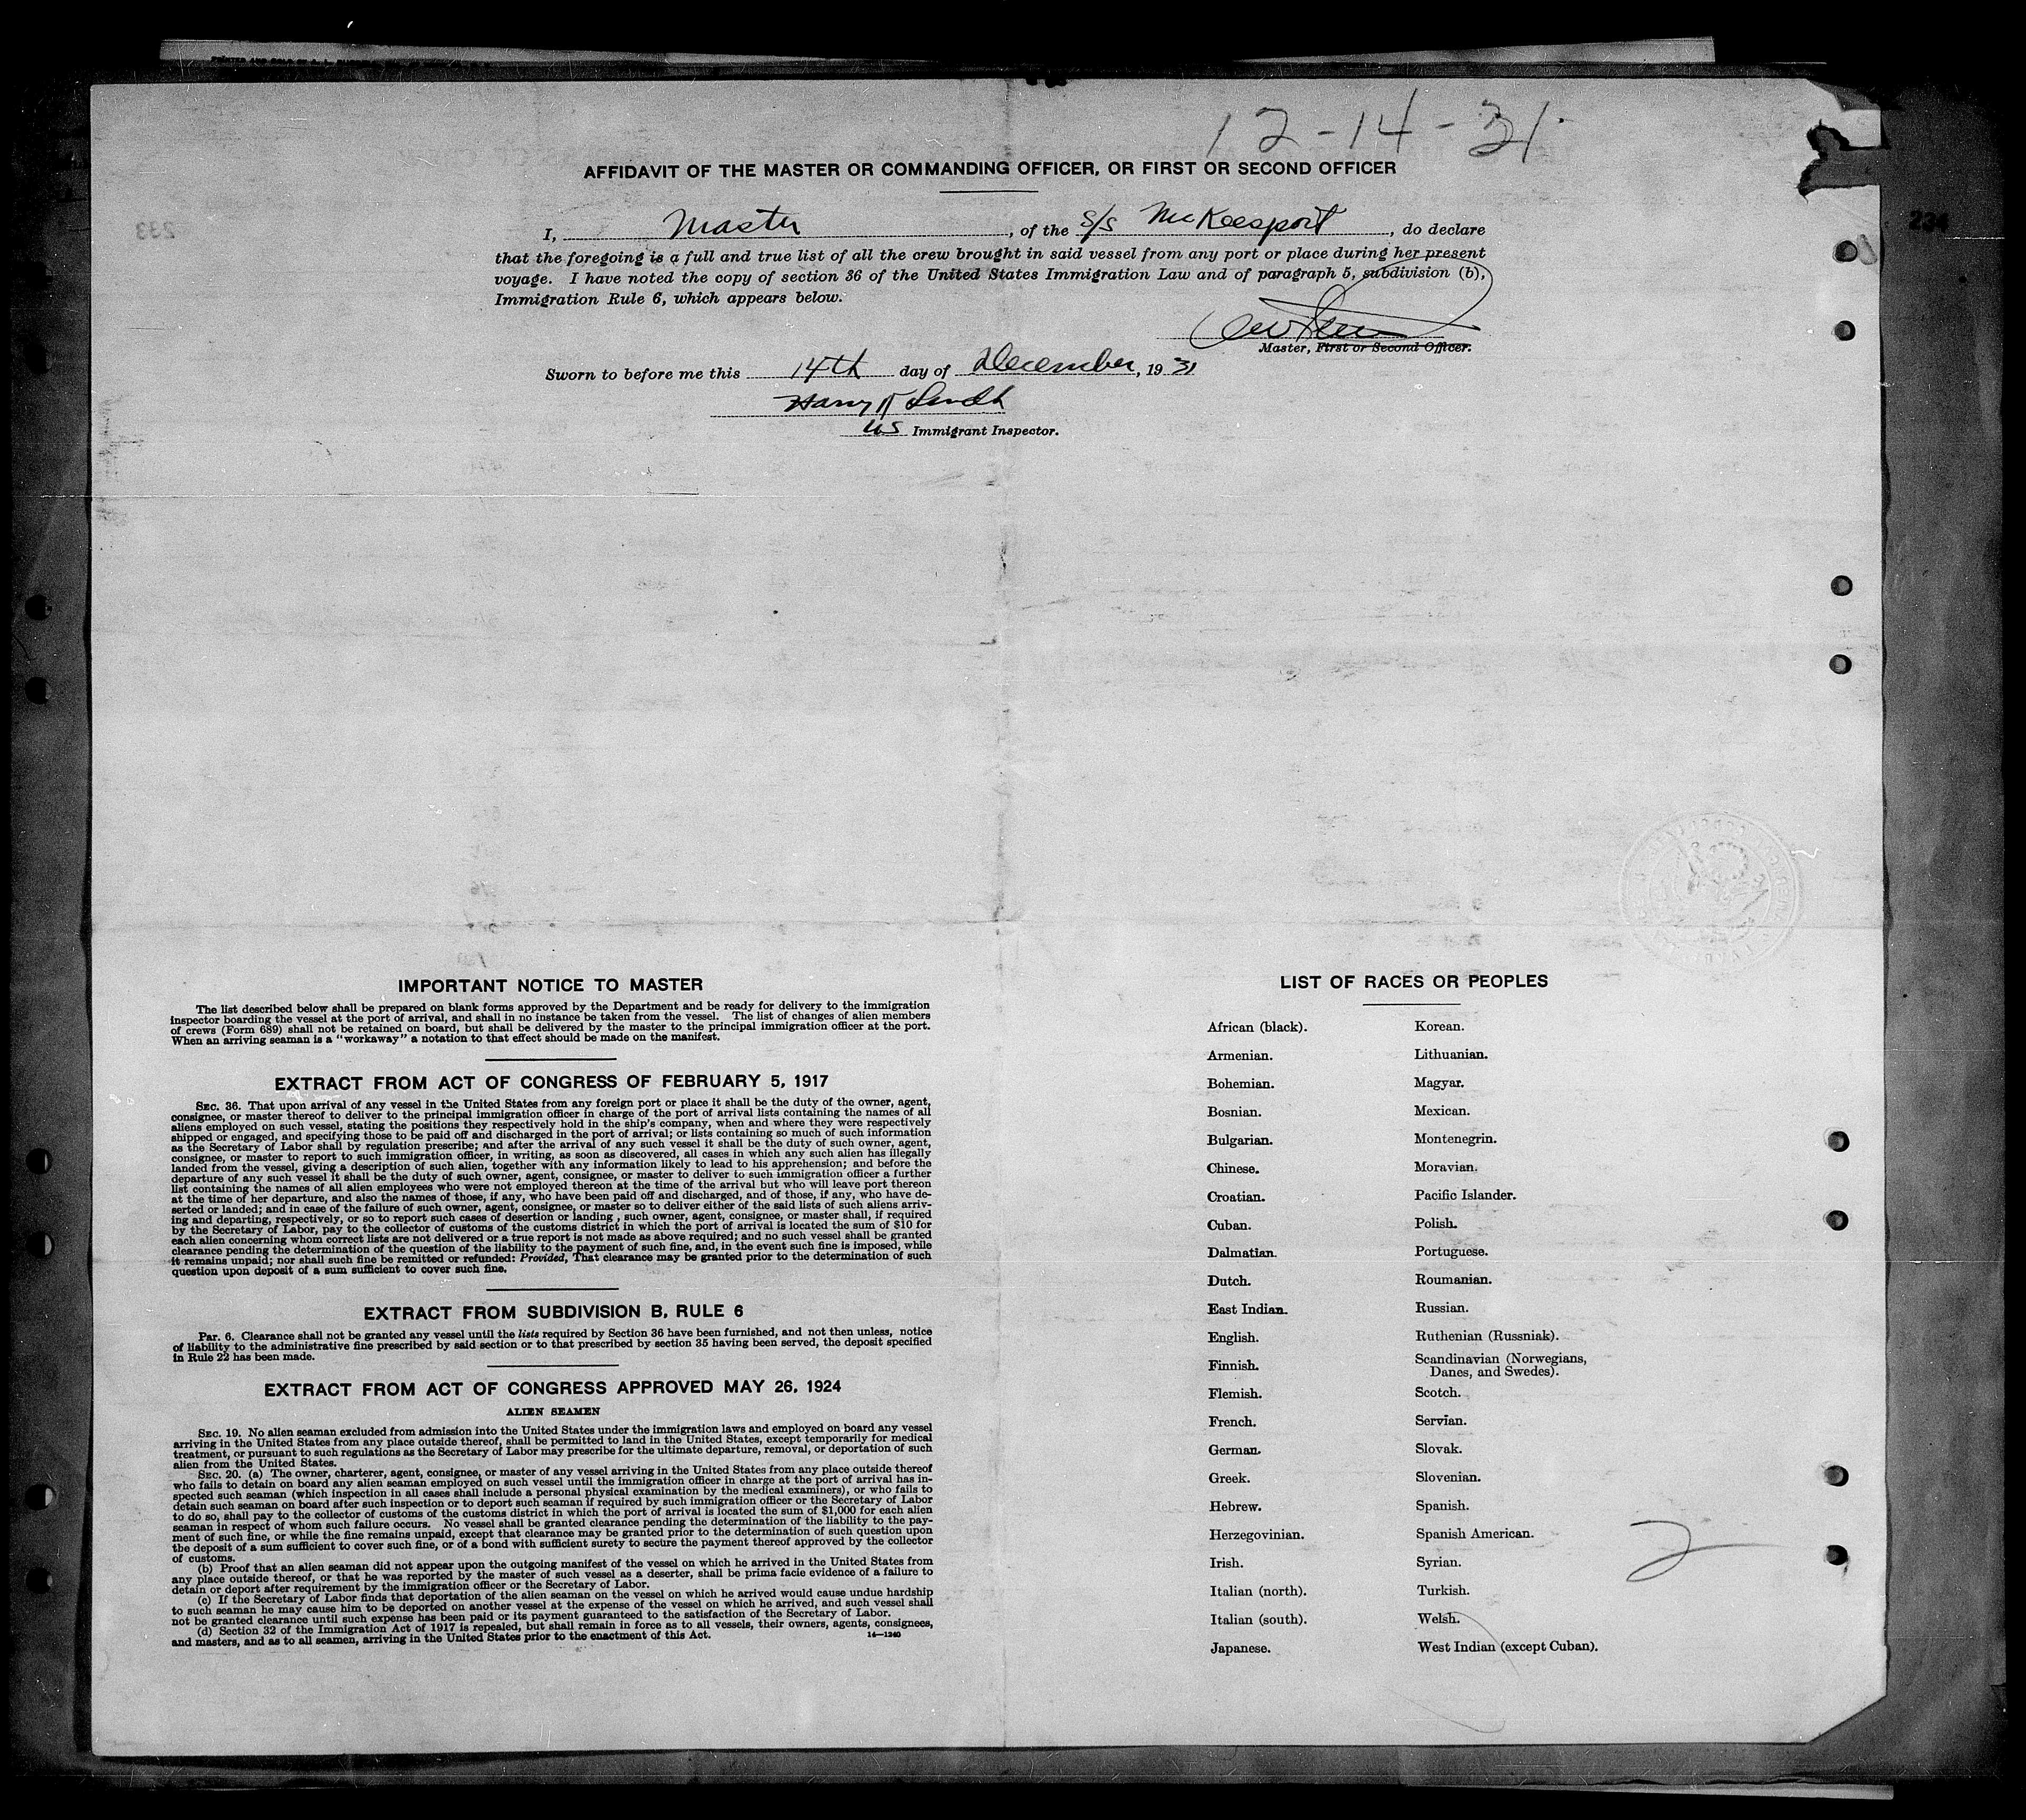 12-14-31
AFFIDAVIT OF THE MASTER OR COMMANDING OFFICER, OR FIRST OR SECOND OFFICER
I, Master, of the S/S McKeesport, do declare
that the foregoing is a full and true list of all the crew brought in said vessel from any port or place during her present
voyage. I have noted the copy of section 36 of the United States Immigration Law and of paragraph 5, subdivision (b),
Immigration Rule 6, which appears below.
Master, First or Second Officer.
Sworn to before me this 14th day of December, 1931
Harry
US Immigrant Inspector.
233
234
IMPORTANT NOTICE TO MASTER
The list described below shall be prepared on blank forms approved by the Department and be ready for delivery to the immigration
inspector boarding the vessel at the port of arrival, and shall in no instance be taken from the vessel. The list of changes of alien members
of crews (Form 689) shall not be retained on board, but shall be delivered by the master to the principal immigration officer at the port.
When an arriving seaman is a "workaway" a notation to that effect should be made on the manifest.
EXTRACT FROM ACT OF CONGRESS OF FEBRUARY 5, 1917
SEC. 36. That upon arrival of any vessel in the United States from any foreign port or place it shall be the duty of the owner, agent,
consignee, or master thereof to deliver to the principal immigration officer in charge of the port of arrival lists containing the names of all
aliens employed on such vessel, stating the positions they respectively hold in the ship's company, when and where they were respectively
shipped or engaged, and specifying those to be paid off and discharged in the port of arrival; or lists containing so much of such information
as the Secretary of Labor shall by regulation prescribe; and after the arrival of any such vessel it shall be the duty of such owner, agent,
consignee, or master to report to such immigration officer, in writing, as soon as discovered, all cases in which any such alien has illegally
landed from the vessel, giving a description of such alien, together with any information likely to lead to his apprehension; and before the
departure of any such vessel it shall be the duty of such owner, agent, consignee, or master to deliver to such immigration officer a further
list containing the names of all alien employees who were not employed thereon at the time of the arrival but who will leave port thereon
at the time of her departure, and also the names of those, if any, who have been paid off and discharged, and of those, if any, who have de-
serted or landed; and in case of the failure of such owner, agent, consignee, or master so to deliver either of the said lists of such aliens arriv-
ing and departing, respectively, or so to report such cases of desertion or landing, such owner, agent, consignee, or master shall, if required
by the Secretary of Labor, pay to the collector of customs of the customs district in which the port of arrival is located the sum of $10 for
each alien concerning whom correct lists are not delivered or a true report is not made as above required; and no such vessel shall be granted
clearance pending the determination of the question of the liability to the payment of such fine, and, in the event such fine is imposed, while
it remains unpaid; nor shall such fine be remitted or refunded: Provided, That clearance may be granted prior to the determination of such
question upon deposit of a sum sufficient to cover such fine.
EXTRACT FROM SUBDIVISION B, RULE 6
Par. 6. Clearance shall not be granted any vessel until the lists required by Section 36 have been furnished, and not then unless, notice
of liability to the administrative fine prescribed by said section or to that prescribed by section 35 having been served, the deposit specified
in Rule 22 has been made.
EXTRACT FROM ACT OF CONGRESS APPROVED MAY 26, 1924
ALIEN SEAMEN
SEC. 19. No alien seaman excluded from admission into the United States under the immigration laws and employed on board any vessel
arriving in the United States from any place outside thereof, shall be permitted to land in the United States, except temporarily for medical
treatment, or pursuant to such regulations as the Secretary of Labor may prescribe for the ultimate departure, removal, or deportation of such
alien from the United States.
SEC. 20. (a) The owner, charterer, agent, consignee, or master of any vessel arriving in the United States from any place outside thereof
who fails to detain on board any alien seaman employed on such vessel until the immigration officer in charge at the port of arrival has in-
spected such seaman (which inspection in all cases shall include a personal physical examination by the medical examiners), or who fails to
detain such seaman on board after such inspection or to deport such seaman if required by such immigration officer or the Secretary of Labor
to do so, shall pay to the collector of customs of the customs district in which the port of arrival is located the sum of $1,000 for each alien
seaman in respect of whom such failure occurs. No vessel shall be granted clearance pending the determination of the liability to the pay-
ment of such fine, or while the fine remains unpaid, except that clearance may be granted prior to the determination of such question upon
the deposit of a sum sufficient to cover such fine, or of a bond with sufficient surety to secure the payment thereof approved by the collector
of customs.
(b) Proof that an alien seaman did not appear upon the outgoing manifest of the vessel on which he arrived in the United States from
any place outside thereof, or that he was reported by the master of such vessel as a deserter, shall be prima facie evidence of a failure to
detain or deport after requirement by the immigration officer or the Secretary of Labor.
(c) If the Secretary of Labor finds that deportation of the alien seaman on the vessel on which he arrived would cause undue hardship
to such seaman he may cause him to be deported on another vessel at the expense of the vessel on which he arrived, and such vessel shall
not be granted clearance until such expense has been paid or its payment guaranteed to the satisfaction of the Secretary of Labor.
(d) Section 32 of the Immigration Act of 1917 is repealed, but shall remain in force as to all vessels, their owners, agents, consignees,
and masters, and as to all seamen, arriving in the United States prior to the enactment of this Act.
14—1240
LIST OF RACES OR PEOPLES
African (black).
Armenian.
Bohemian.
Bosnian.
Bulgarian.
Chinese.
Croatian.
Cuban.
Dalmatian.
Dutch.
East Indian.
English.
Finnish.
Flemish.
French.
German.
Greek.
Hebrew.
Herzegovinian.
Irish.
Italian (north).
Italian (south).
Japanese.
Korean.
Lithuanian.
Magyar.
Mexican.
Montenegrin.
Moravian.
Pacific Islander.
Polish.
Portuguese.
Roumanian.
Russian.
Ruthenian (Russniak).
Scandinavian (Norwegians,
Danes, and Swedes).
Scotch.
Servian.
Slovak.
Slovenian.
Spanish.
Spanish American.
Syrian.
Turkish.
Welsh.
West Indian (except Cuban).
2